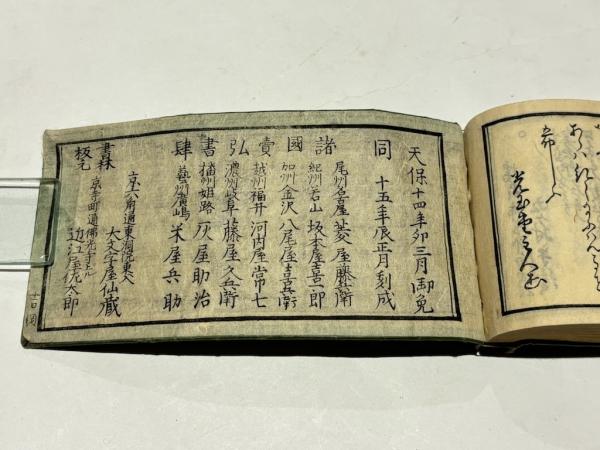 天保十四年卯三月御免
同 十五年辰正月刻成
諸國賣弘書肆
尾州名古屋 菱屋藤兵衛
紀州若山 坂本屋喜一郎
加州金沢 八尾屋喜兵衛
越州福井 河内屋常七
濃州岐阜 藤屋久兵衛
播州姫路 灰屋助治
藝州廣嶋 米屋兵助
書林
板元
京六角通東洞院東入
大文字屋仙蔵
京寺町通佛光寺上ル
近江屋佐太郎